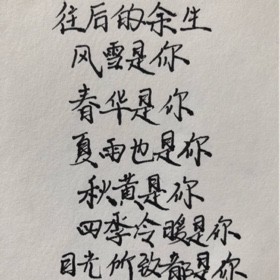 往后的余生
风雪是你
春华是你
夏雨也是你
秋黄是你
四季冷暖是你
目光所致都是你